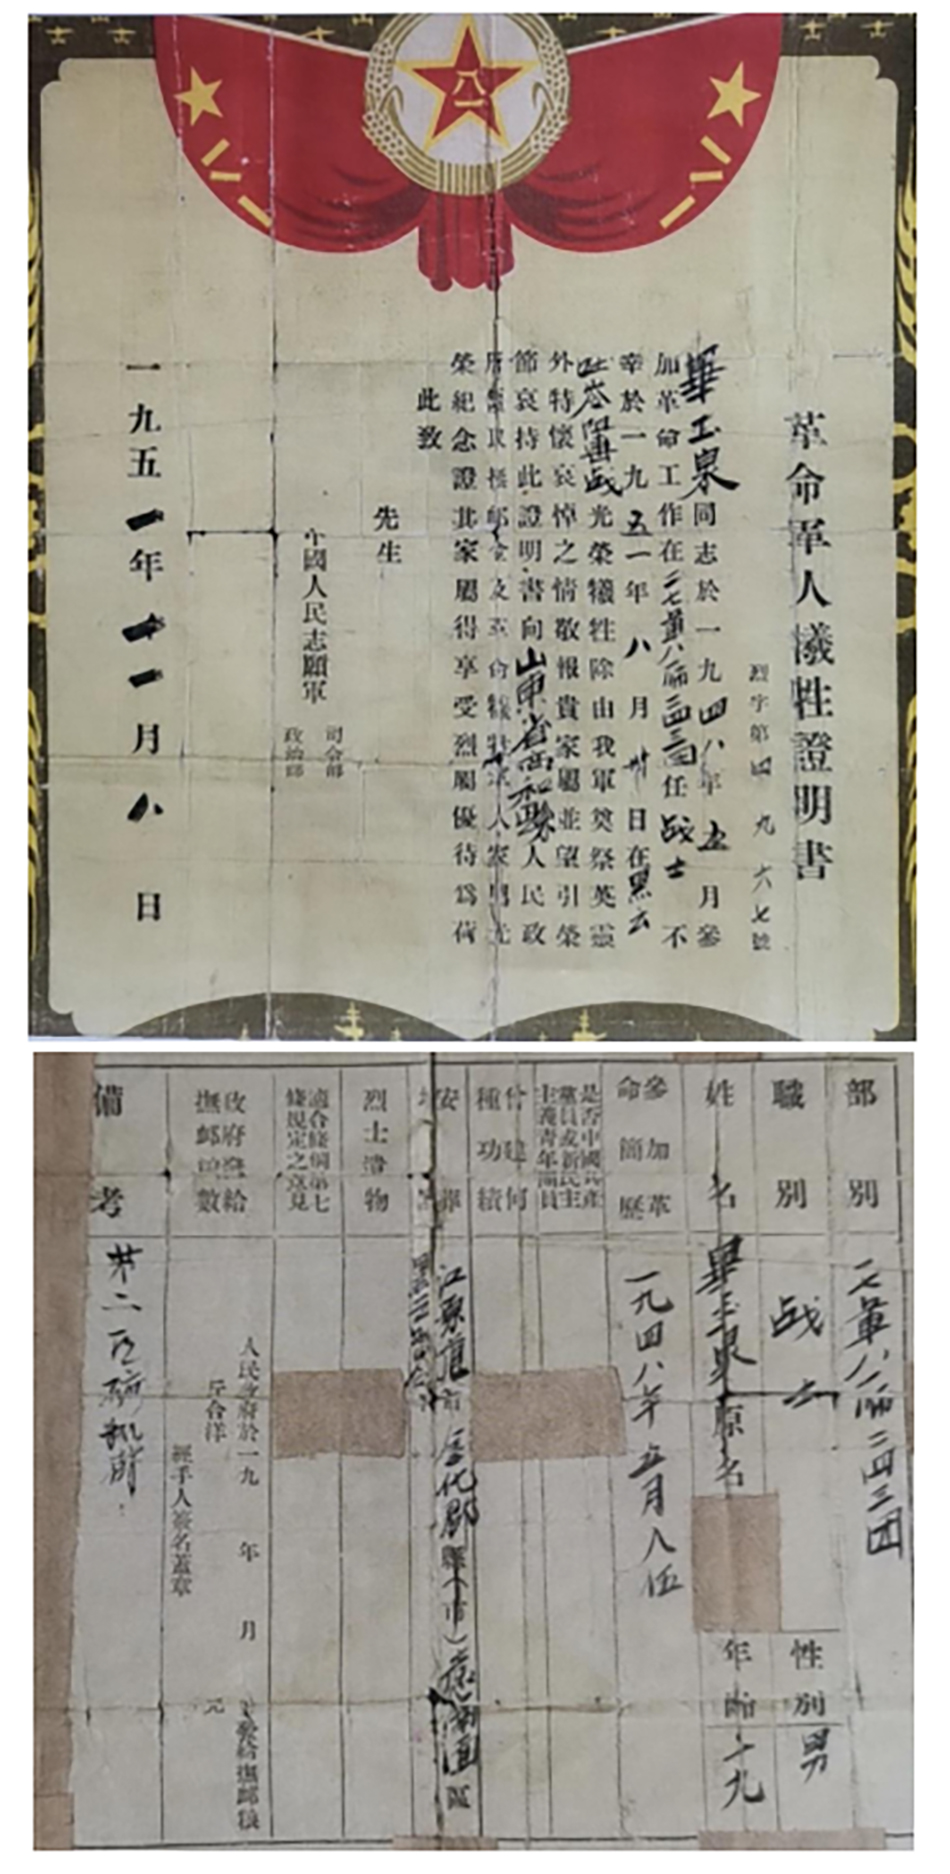 八一
革命軍人犧牲證明書
烈字第四九六七號
畢玉泉同志於一九四八年五月參
加革命工作在二七軍八一師二四三団任战士不
幸於一九五一年八月卅日在黑云
吐岺阻击战光榮犧牲除由我軍奠祭英靈
外特懷哀悼之情敬報貴家屬並望引榮
節哀持此證明書向山東省人民政
府領取撫卹金及革命犧牲軍人家屬光
榮紀念證其家屬得享受烈屬優待爲荷
此致
先生
中國人民志願軍
司令部
政治部
一九五一年十一月八日
部別
二七軍八一師二四三団
職別
战士
性別
男
姓名
畢玉泉原名
年齡
十九
參加革命簡歷
一九四八年五月入伍
是否中國共產黨員或新民主主義青年團員
曾建何種功績
安葬地點
江原道市
縣(市)
區
烈士遺物
適合條例第七條規定之意見
政府發給撫卹糧數
人民政府於一九 年 月 日發給撫卹糧
斤合洋 元
經手人簽名蓋章
備考